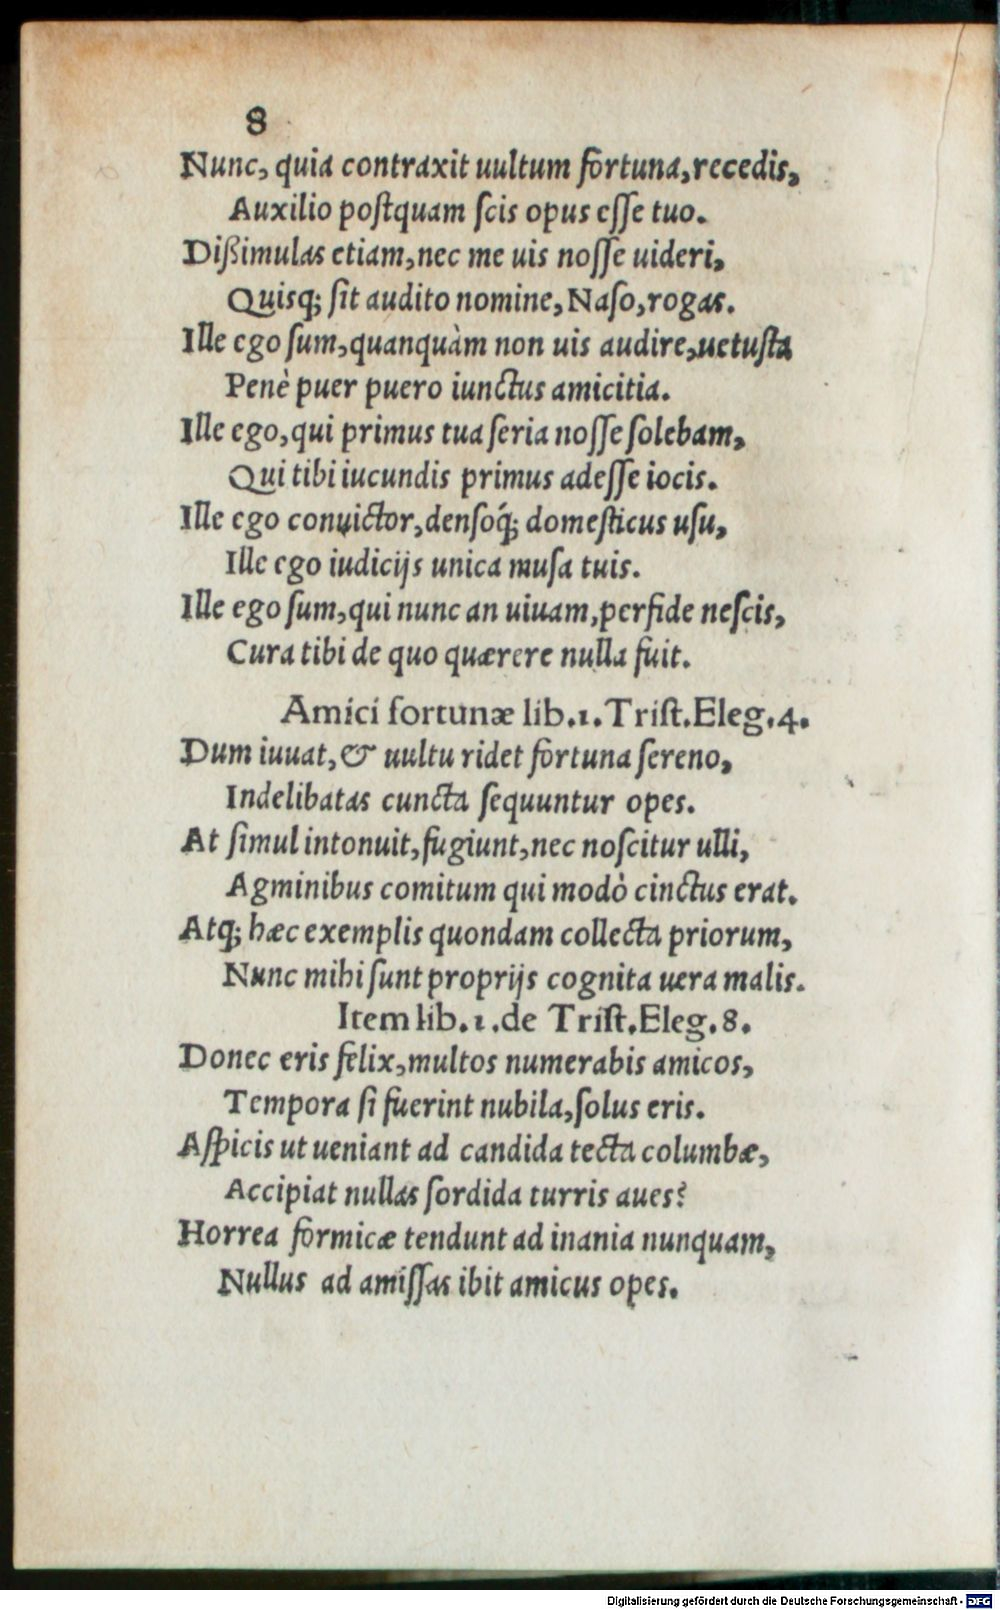 8
Nunc, quia contraxit uultum fortuna, recedis,
Auxilio postquam scis opus esse tuo.
Dißimulas etiam, nec me uis nosse uideri,
Quisq; sit audito nomine, Naso, rogas.
Ille ego sum, quanquàm non uis audire, uetusta
Penè puer puero iunctus amicitia.
Ille ego, qui primus tua seria nosse solebam,
Qui tibi iucundis primus adesse iocis.
Ille ego conuictor, densoq́; domesticus usu,
Ille ego iudicijs unica musa tuis.
Ille ego sum, qui nunc an uiuam, perfide nescis,
Cura tibi de quo quærere nulla fuit.
Amici fortunæ lib.1.Trist.Eleg.4.
Dum iuuat, & uultu ridet fortuna sereno,
Indelibatas cuncta sequuntur opes.
At simul intonuit, fugiunt, nec noscitur ulli,
Agminibus comitum qui modò cinctus erat.
Atq; hæc exemplis quondam collecta priorum,
Nunc mihi sunt proprijs cognita uera malis.
Item lib.1.de Trist.Eleg.8.
Donec eris felix, multos numerabis amicos,
Tempora si fuerint nubila, solus eris.
Aspicis ut ueniant ad candida tecta columbæ,
Accipiat nullas sordida turris aues?
Horrea formicæ tendunt ad inania nunquam,
Nullus ad amissas ibit amicus opes.
Digitalisierung gefördert durch die Deutsche Forschungsgemeinschaft - DFG